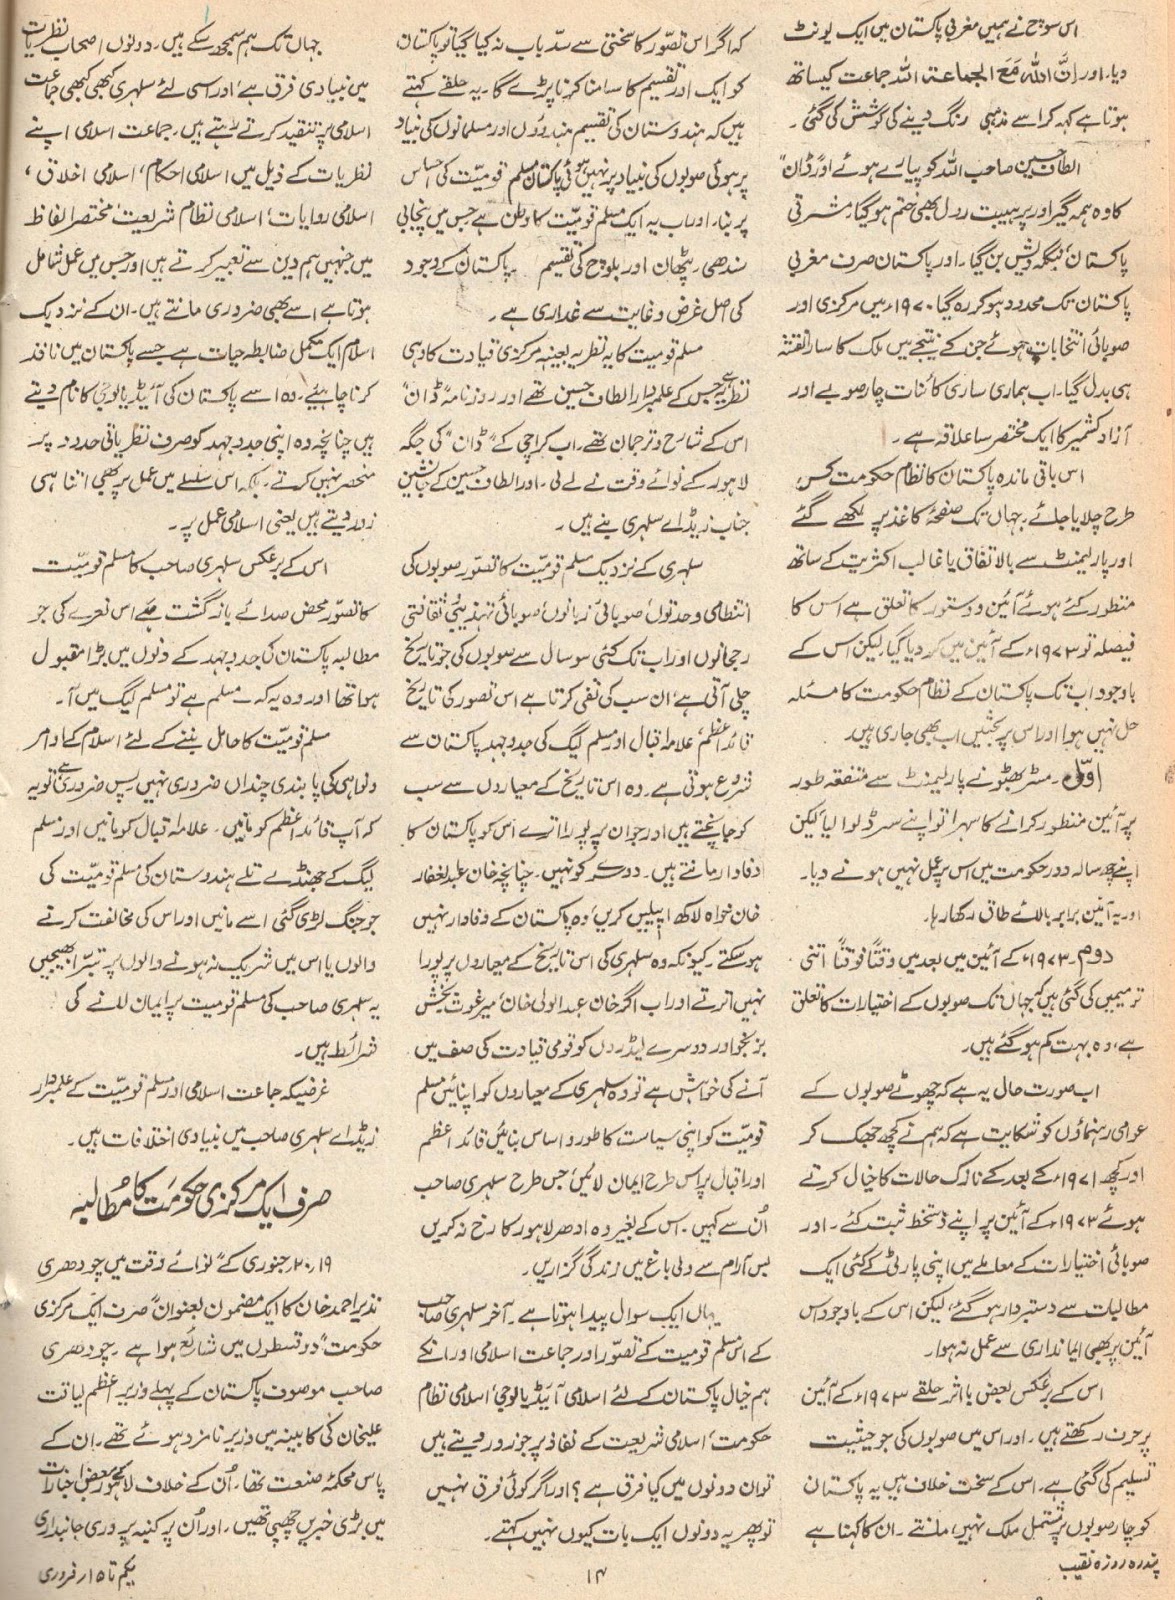 اس سوچ نے ہمیں مغربی پاکستان میں ایک یونٹ
دیا۔ اور اِنَّ اللہَ مَعَ الجماعۃ اللہ جماعت کیساتھ
ہوتا ہے کہہ کر اسے مذہبی رنگ دینے کی کوشش کی گئی۔
الطاف حسین صاحب اللہ کو پیارے ہوئے اور "ڈان"
کا وہ ہمہ گیر اور پر ہیبت رول بھی ختم ہو گیا۔ مشرقی
پاکستان بنگلہ دیش بن گیا۔ اور پاکستان صرف مغربی
پاکستان تک محدود ہو کر رہ گیا۔ ۱۹۷۰ء میں مرکزی اور
صوبائی انتخابات ہوئے جن کے نتیجے میں ملک کا سارا نقشہ
ہی بدل گیا۔ اب ہماری ساری کائنات چار صوبے اور
آزاد کشمیر کا ایک مختصر سا علاقہ ہے۔
اس باقی ماندہ پاکستان کا نظام حکومت کس
طرح چلایا جائے۔ جہاں تک صفحۂ کاغذ پر لکھے گئے
اور پارلیمنٹ سے بالاتفاق یا غالب اکثریت کے ساتھ
منظور کئے ہوئے آئین و دستور کا تعلق ہے اس کا
فیصلہ تو ۱۹۷۳ء کے آئین میں کر دیا گیا لیکن اس کے
باوجود اب تک پاکستان کے نظام حکومت کا مسئلہ
حل نہیں ہوا اور اس پر بحثیں اب بھی جاری ہیں
اوّل۔ مسٹر بھٹو نے پارلیمنٹ سے متفقہ طور
پر آئین منظور کرانے کا سہرا تو اپنے سر ڈلوا لیا لیکن
اپنے چھ سالہ دور حکومت میں اس پر عمل نہیں ہونے دیا۔
اور یہ آئین برابر بالائے طاق رکھا رہا۔
دوم۔ ۱۹۷۳ء کے آئین میں بعد میں وقتاً فوقتاً اتنی
ترمیمیں کی گئی ہیں کہ جہاں تک صوبوں کے اختیارات کا تعلق
ہے، وہ بہت کم ہو گئے ہیں۔
اب صورت حال یہ ہے کہ چھوٹے صوبوں کے
عوامی رہنماؤں کو شکایت ہے کہ ہم نے کچھ جھجک کر
اور کچھ ۱۹۷۱ء کے بعد کے نازک حالات کا خیال کرتے
ہوئے ۱۹۷۳ء کے آئین پر اپنے دستخط ثبت کئے۔ اور
صوبائی اختیارات کے معاملے میں اپنی پارٹی کے کئی ایک
مطالبات سے دستبردار ہو گئے، لیکن اس کے باوجود اس
آئین پر بھی ایمانداری سے عمل نہ ہوا۔
اس کے برعکس بعض با اثر حلقے ۱۹۷۳ء کے آئین
پر حرف رکھتے ہیں۔ اور اس میں صوبوں کی جو حیثیت
تسلیم کی گئی ہے۔ اس کے سخت خلاف ہیں یہ پاکستان
کو چار صوبوں پر مشتمل ملک نہیں مانتے۔ ان کا کہنا ہے
کہ اگر اس تصوّر کا سختی سے سدّ باب نہ کیا گیا تو پاکستان
کو ایک اور تقسیم کا سامنا کرنا پڑے گا۔ یہ حلقے کہتے
ہیں کہ ہندوستان کی تقسیم ہندوؤں اور مسلمانوں کی بنیاد
پر ہوئی صوبوں کی بنیاد پر نہیں ہوئی پاکستان مسلم قومیّت کی اساس
پر بنا۔ اور اب یہ ایک مسلم قومیّت کا وطن ہے جس میں پنجابی
سندھی۔ پٹھان اور بلوچ کی تقسیم پاکستان کے وجود
کی اصل غرض و غایت سے غداری ہے۔
مسلم قومیت کا یہ نظریہ بعینہ مرکزی قیادت کا وہی
نظریہ ہے جس کے علمبردار الطاف حسین تھے اور روزنامہ "ڈان"
اس کے شارح و ترجمان تھے۔ اب کراچی کے "ڈان" کی جگہ
لاہور کے نوائے وقت نے لے لی۔ اور الطاف حسین کے جانشین
جناب زیڈ اے سلہری بنے ہیں۔
سلہری کے نزدیک مسلم قومیّت کا تصوّر صوبوں کی
انتظامی وحدتوں، صوبائی زبانوں، صوبائی تہذیبی، ثقافتی
رجحانوں اور اب تک کئی سو سال سے صوبوں کی جو تاریخ
چلی آتی ہے، ان سب کی نفی کرتا ہے اس تصور کی تاریخ
قائداعظم، علامہ اقبال اور مسلم لیگ کی جدوجہد پاکستان سے
شروع ہوتی ہے۔ وہ اس تاریخ کے معیاروں سے سب
کو جانچتے ہیں اور جو ان پر پورا اترے اس کو پاکستان کا
وفادار مانتے ہیں۔ دوسرے کو نہیں۔ چنانچہ خان عبدالغفار
خان خواہ لاکھ اپیلیں کریں، وہ پاکستان کے وفادار نہیں
ہو سکتے۔ کیونکہ وہ سلہری کی اس تاریخ کے معیاروں پر پورا
نہیں اترتے اور اب اگر خان عبدالولی خان، میر غوث بخش
بزنجو اور دوسرے لیڈروں کو قومی قیادت کی صف میں
آنے کی خواہش ہے تو وہ سلہری کے معیاروں کو اپنائیں مسلم
قومیّت کو اپنی سیاست کا طور و اساس بنائیں قائد اعظم
اور اقبال پر اس طرح ایمان لائیں، جس طرح سلہری صاحب
اُن سے کہیں۔ اس کے بغیر وہ ادھر لاہور کا رخ نہ کریں
بس آرام سے ولی باغ میں زندگی گزاریں۔
یہاں ایک سوال پیدا ہوتا ہے۔ آخر سلہری صاحب
کے اس مسلم قومیت کے تصوّر اور جماعت اسلامی اور انکے
ہم خیال پاکستان کے لئے اسلامی آئیڈیالوجی، اسلامی نظام
حکومت، اسلامی شریعت کے نفاذ پر جو زور دیتے ہیں
تو ان دونوں میں کیا فرق ہے؟ اور اگر کوئی فرق نہیں
تو پھر یہ دونوں ایک بات کیوں نہیں کہتے۔
جہاں تک ہم سمجھ سکے ہیں۔ دونوں اصحاب نظریات
میں بنیادی فرق ہے، اور اسی لئے سلہری کبھی کبھی جماعت
اسلامی پر تنقید کرتے رہتے ہیں۔ جماعت اسلامی اپنے
نظریات کے ذیل میں اسلامی احکام، اسلامی اخلاق،
اسلامی روایات، اسلامی نظام شریعت، مختصر الفاظ
میں جنہیں ہم دین سے تعبیر کرتے ہیں اور جس میں عمل شامل
ہوتا ہے اسے بھی ضروری مانتے ہیں۔ ان کے نزدیک
اسلام ایک مکمل ضابطہ حیات ہے جسے پاکستان میں نافذ
کرنا چاہیئے۔ وہ اسے پاکستان کی آئیڈیالوجی کا نام دیتے
ہیں چنانچہ وہ اپنی جدوجہد کو صرف نظریاتی حدود پر
منحصر نہیں کرتے۔ بلکہ اس سلسلے میں عمل پر بھی اتنا ہی
زور دیتے ہیں یعنی اسلامی عمل پر۔
اس کے برعکس سلہری صاحب کا مسلم قومیّت
کا تصوّر محض صدائے بازگشت ہے اس نعرے کی جو
مطالبہ پاکستان کی جدوجہد کے دنوں میں بڑا مقبول
ہوا تھا اور وہ یہ کہ۔ مسلم ہے تو مسلم لیگ میں آ۔
مسلم قومیّت کا حامل بننے کے لئے اسلام کے اوامر
و نواہی کی پابندی چنداں ضروری نہیں۔ بس ضروری ہے تو یہ
کہ آپ قائد اعظم کو مانیں۔ علامہ اقبال کو مانیں اور مسلم
لیگ کے جھنڈے تلے ہندوستان کی مسلم قومیّت کی
جو جنگ لڑی گئی اسے مانیں اور اس کی مخالفت کرنے
والوں یا اس میں شریک نہ ہونے والوں پر تبرّا بھیجیں
یہ سلہری صاحب کی مسلم قومیت پر ایمان لانے کی
شرائط ہیں۔
غرضیکہ جماعت اسلامی اور مسلم قومیّت کے علمبردار
زیڈ اے سلہری صاحب میں بنیادی اختلافات ہیں۔
صرف ایک مرکزی حکومت کا مطالبہ
۱۹، ۲۰ جنوری کے "نوائے وقت میں چودھری
نذیر احمد خان کا ایک مضمون بعنوان "صرف ایک مرکزی
حکومت" دو قسطوں میں شائع ہوا ہے۔ چودھری
صاحب موصوف پاکستان کے پہلے وزیر اعظم لیاقت
علیخان کی کابینہ میں وزیر نامزد ہوئے تھے۔ ان کے
پاس محکمۂ صنعت تھا۔ اُن کے خلاف لاہور کے بعض اخبارات
میں بڑی خبریں چھپی تھیں۔ اور اُن پر کنبہ پروری جانبداری
پندرہ روزہ نقیب
۱۴
یکم تا ۱۵ر فروری